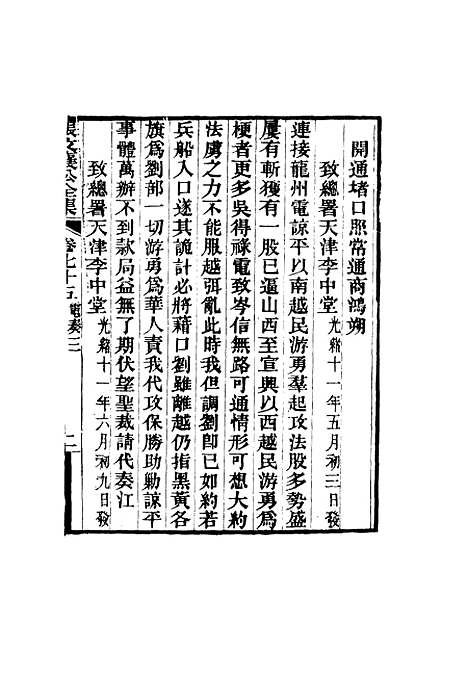 開通堵口照常通商鴻朔
致總署天津李中堂光緒十一年五月初三日發
連接龍州電諒平以南越民游勇羣起攻法股多勢盛
屢有斬獲有一股已逼山西至宣興以西越民游勇爲
梗者更多吳得祿電致岑信無路可通情形可想大約
法虜之力不能服越弭亂此時我但調劉卽已如約若
兵船入口遂其詭計必將藉口劉雖離越仍指黑黃各
旗爲劉部一切游勇爲華人責我代攻保勝助勦諒平
事體萬辦不到款局益無了期伏望聖裁請代奏江
致總署天津李中堂光緒十一年六月初九日發
張文襄公全集 卷七十五 電奏三 二